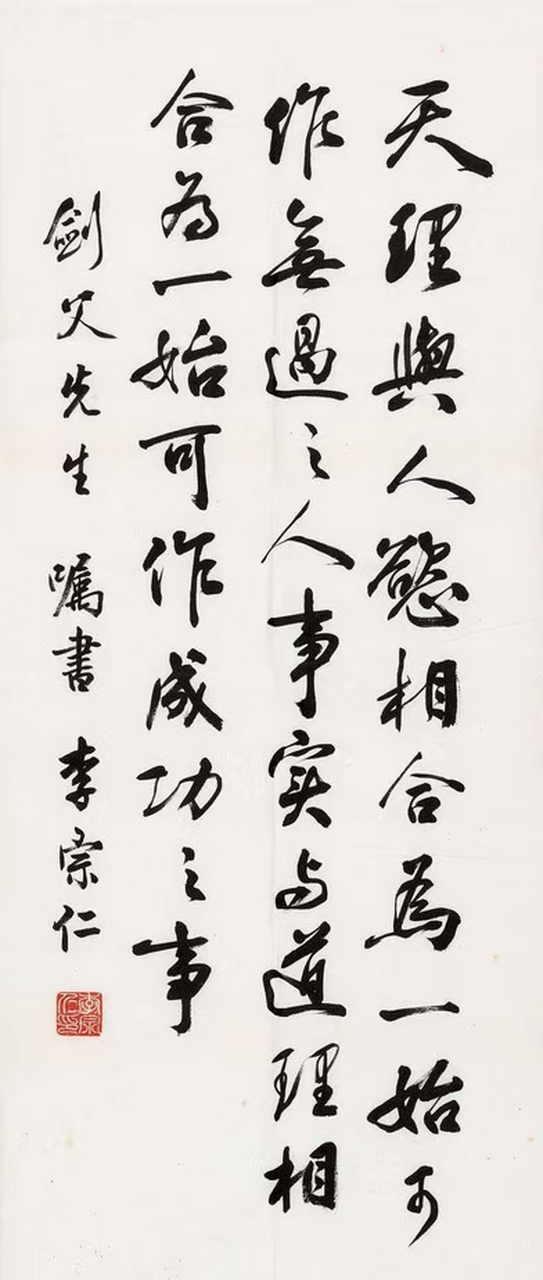 天理與人慾相合為一始可
作無過之人事实与道理相
合为一始可作成功之事
劍父先生 嘱書 李宗仁